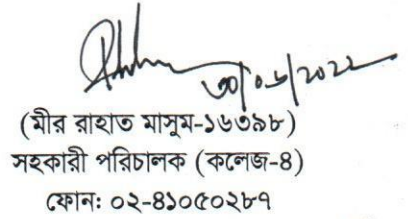 ৩০/০৬/২০২২
(মীর রাহাত মাসুম-১৬৩৯৮)
সহকারী পরিচালক (কলেজ-৪)
ফোন: ০২-৪১০৫০২৮৭